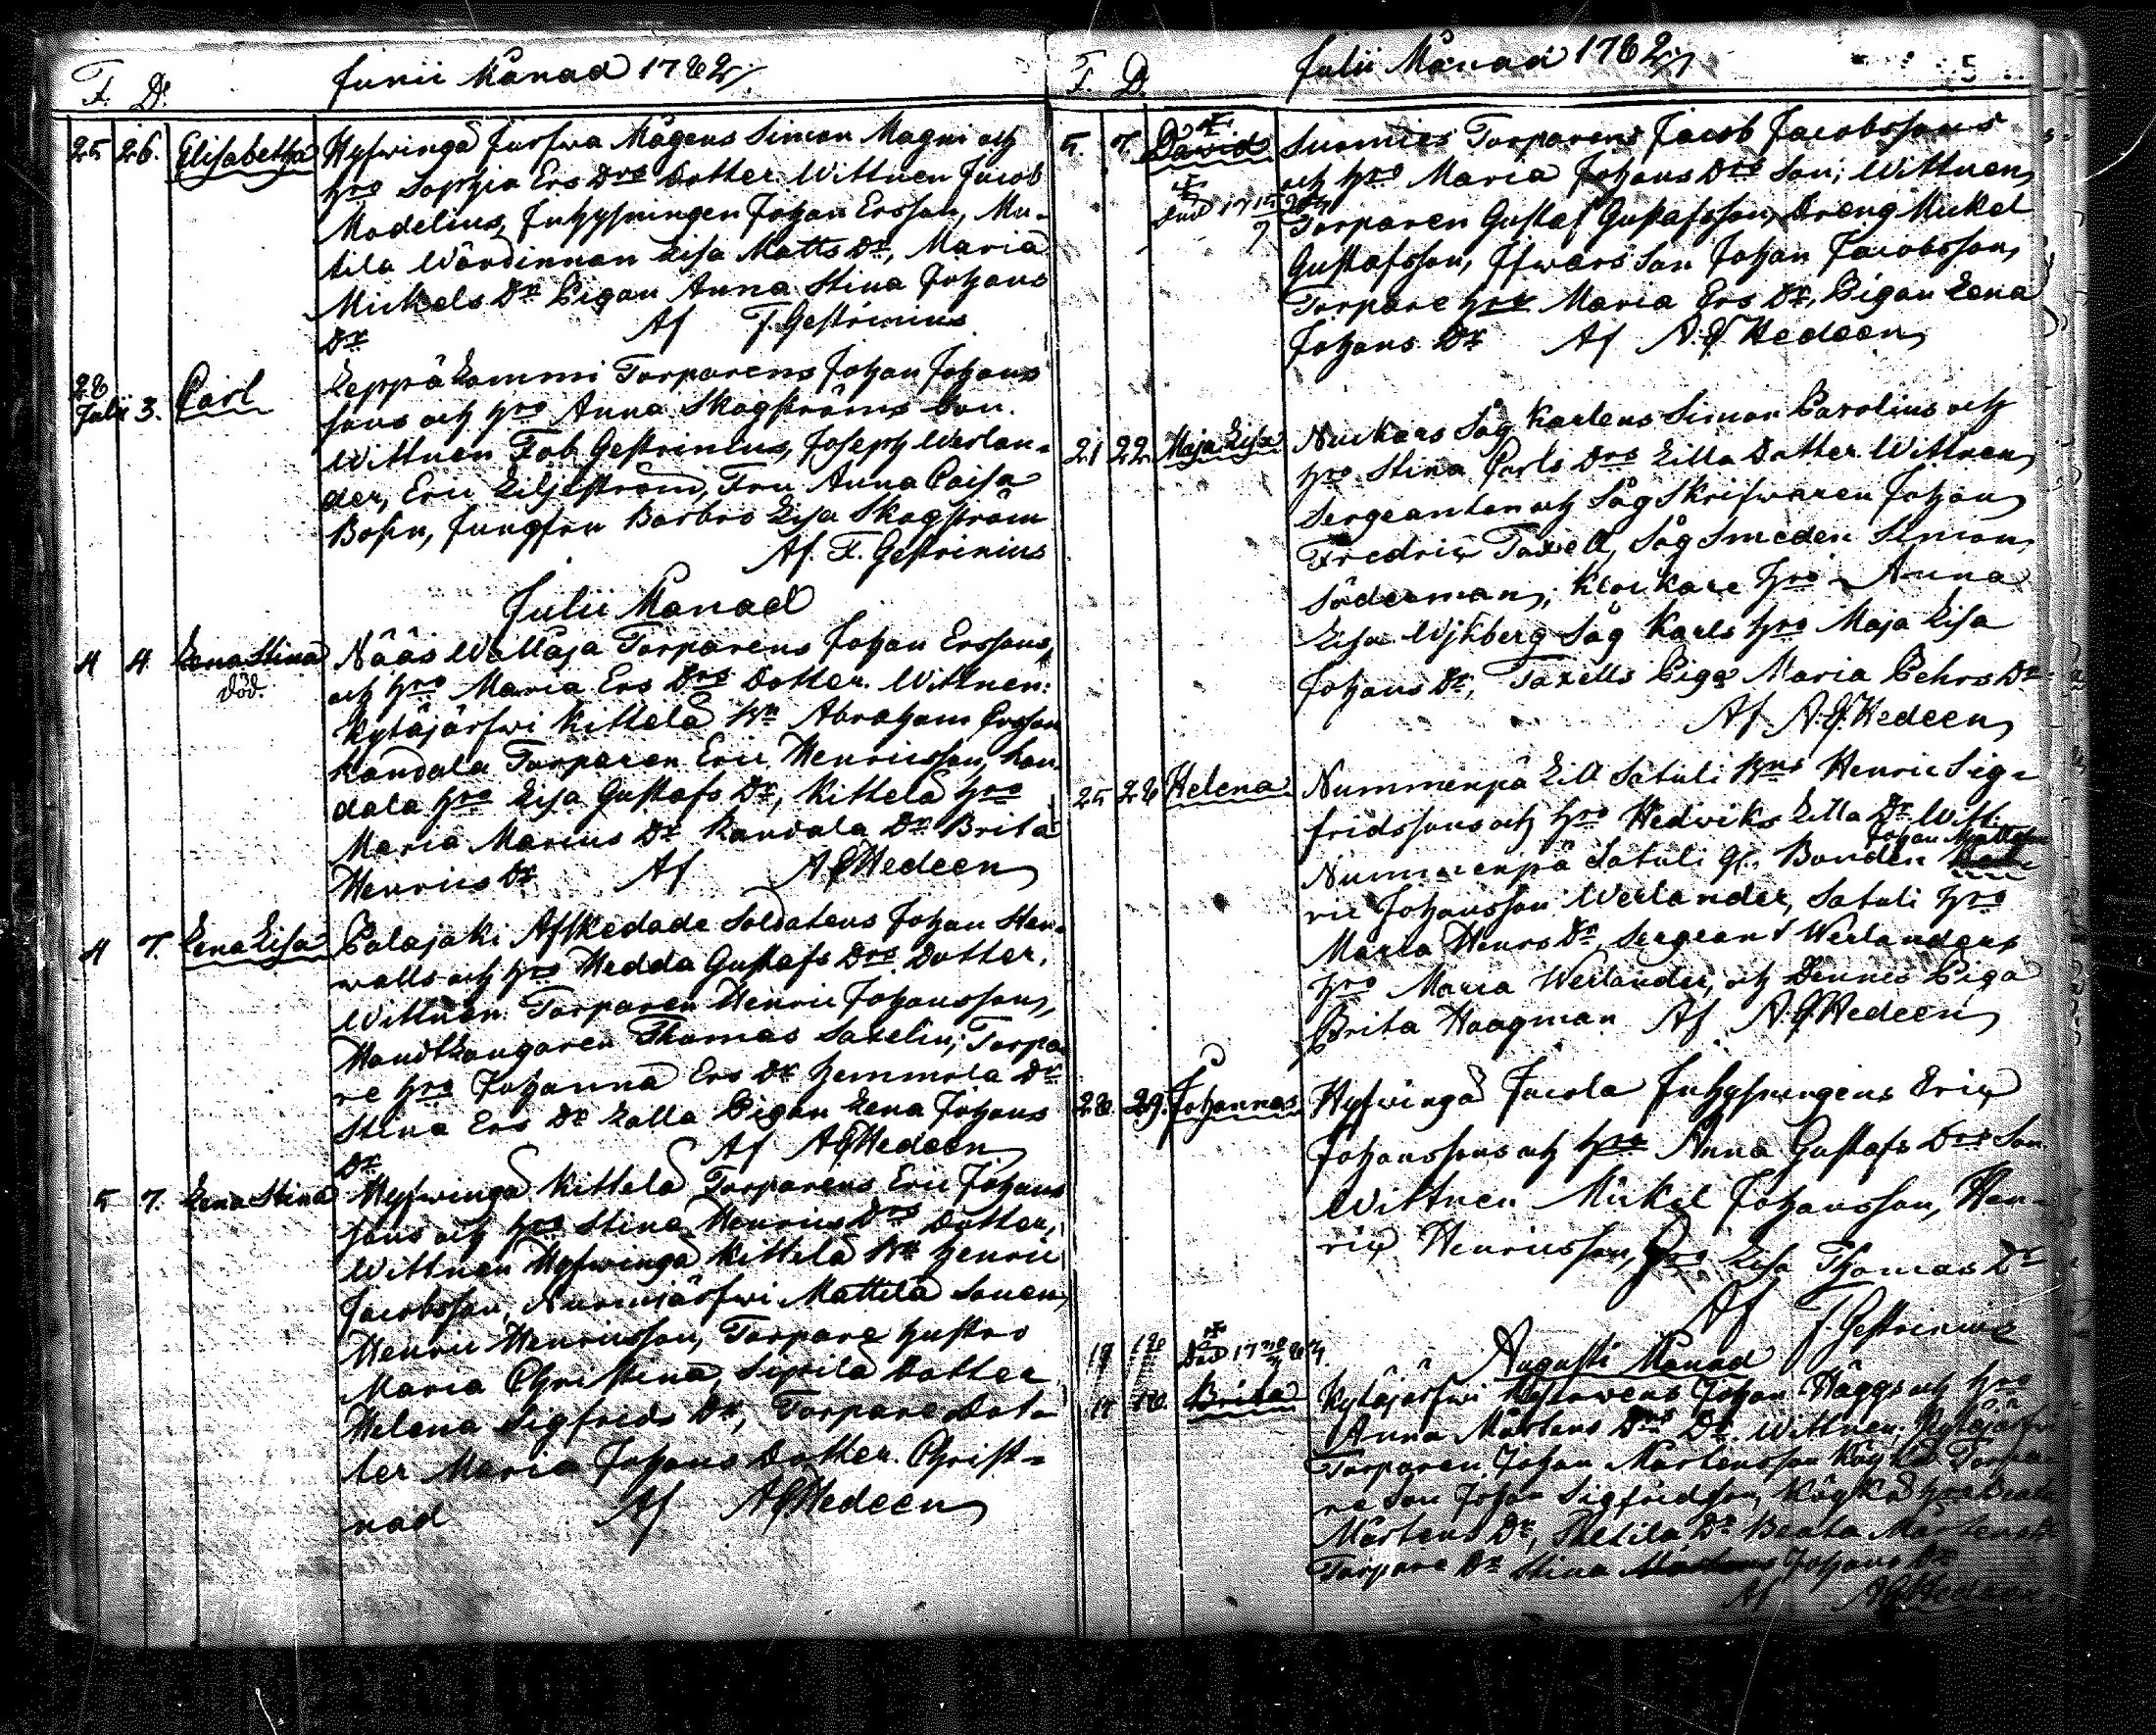 Junii Månad 1782
F. D.
25 26. Elisabetha Hyfwinga Jurswa Mågens Simon Magni och
hro Sophia Ers Drs Dotter. Wittnen Jacob
Modelius, Inhysningen Johan Ersson, Mu-
tila Wärdinnan Lisa Matts Dr, Maria
Mickels Dr Pigan Anna Stina Johans
Dr Af F. Gestrinius
28 Julii 3. Carl Leppälammi Torparens Johan Johans
sons och hro Anna Skogströms Son.
Wittnen Fab Gestrinius, Joseph Werlan-
der, Eric Liljeström, Fru Anna Caisa
Bosin, Jungfru Barbro Lisa Skogström
Af. F. Gestrinius
Julii Månad
4 4 Lena Stina Nääs Wallaja Torparens Johan Erssons,
död. och hro Maria Ers Drs Dotter. Wittnen:
Kytäjärfwi Kittelä Hn Abraham Ersson
Kandala Torparen Eric Henricsson, Kan-
dala hro Lisa Gustafs Dr, Kittelä hro
Maria Marius Dr Kandala Dr Brita
Henrics Dr Af A Hedeen
4 7. Lena Lisa Palajoki Afskedade Soldatens Johan Sten-
walls och hro Hedda Gustafs Drs Dotter.
Wittnen. Torparen Henric Johansson,
Handtlangaren Thomas Saxelin; Torpa-
re hro Johanna Ers Dr Hemmola Dr
Stina Ers Dr Lalla Pigan Lena Johans
Dr Af A Hedeen
5 7. Lena Stina Hyfwinga Kittelä Torparens Eric Johans
sons och hro Stina Henrics Drs Dotter,
Wittnen Hyfwinga Kittelä Hn Henric
Jacobsson, Nurmijärfwi Mattila Sonen
Henric Henricsson, Torpare hustro
Maria Christina, Sipilä Dotter
Helena Sigfrids Dr, Torpare Dot-
ter Maria Johans Dotter. Christ-
nad Af A Hedeen
Julii Månad 1782
F. D.
5. 7. David Suomies Torparens Jacob Jacobssons
och hro Maria Johans Drs Son; Wittnen
död Torparen Gustaf Gustafsson, Dreng Mickel
Gustafsson, Ifwars Son Johan Jacobsson,
Torpare hro Maria Ers Dr, Pigan Lena
Johans Dr Af A. Hedeen
21 22 Maja Lisa Nuckars Såg Karlens Simon Carolius och
hro Stina Carls Drs Lilla Dotter. Wittnen
Sergeanten och Såg Skrifwaren Johan
Fredric Taxell, Såg Smeden Simon
Söderman; Klockare hro Anna
Lisa Wikberg Såg Karls hro Maja Lisa
Johans Dr, Taxells Piga Maria Pehrs Dr
Af A. Hedeen
25 28 Helena Nummenpä Lill Satuli Hns Henric Sig-
fridssons och hro Hedviks Lilla Dr Witt.
Nummenpä Satuli G. Bonden Johan Mattsson
ric Johansson Werlander, Satuli hro
Maria Henrs Dr, Sergeant Werlanders
hro Maria Werlander, och Dennes Piga
Brita Haagman Af A. Hedeen
28. 29. Johannes Hyfwinga Jacola Inhysningens Eric
Johanssons och hro Anna Gustafs Drs Son.
Wittnen Mickel Johansson, Hen-
ric Henricsson, hro Lisa Thomas Dr
Af F. Gestrinius
Augusti Månad
död
17 18 Brita Kytäjärfwi Johan Häggs och hro
Anna Mårtens Drs Dr. Wittnen: Kytäjärfwi
Torparen Johan Mårtensson Torpa-
re Son Johan Sigfridsson, hro Beata
Mårtens Dr, Dr Beata Mårtens Dr
Torpare Dr Stina Johans Dr
Af A Hedeen